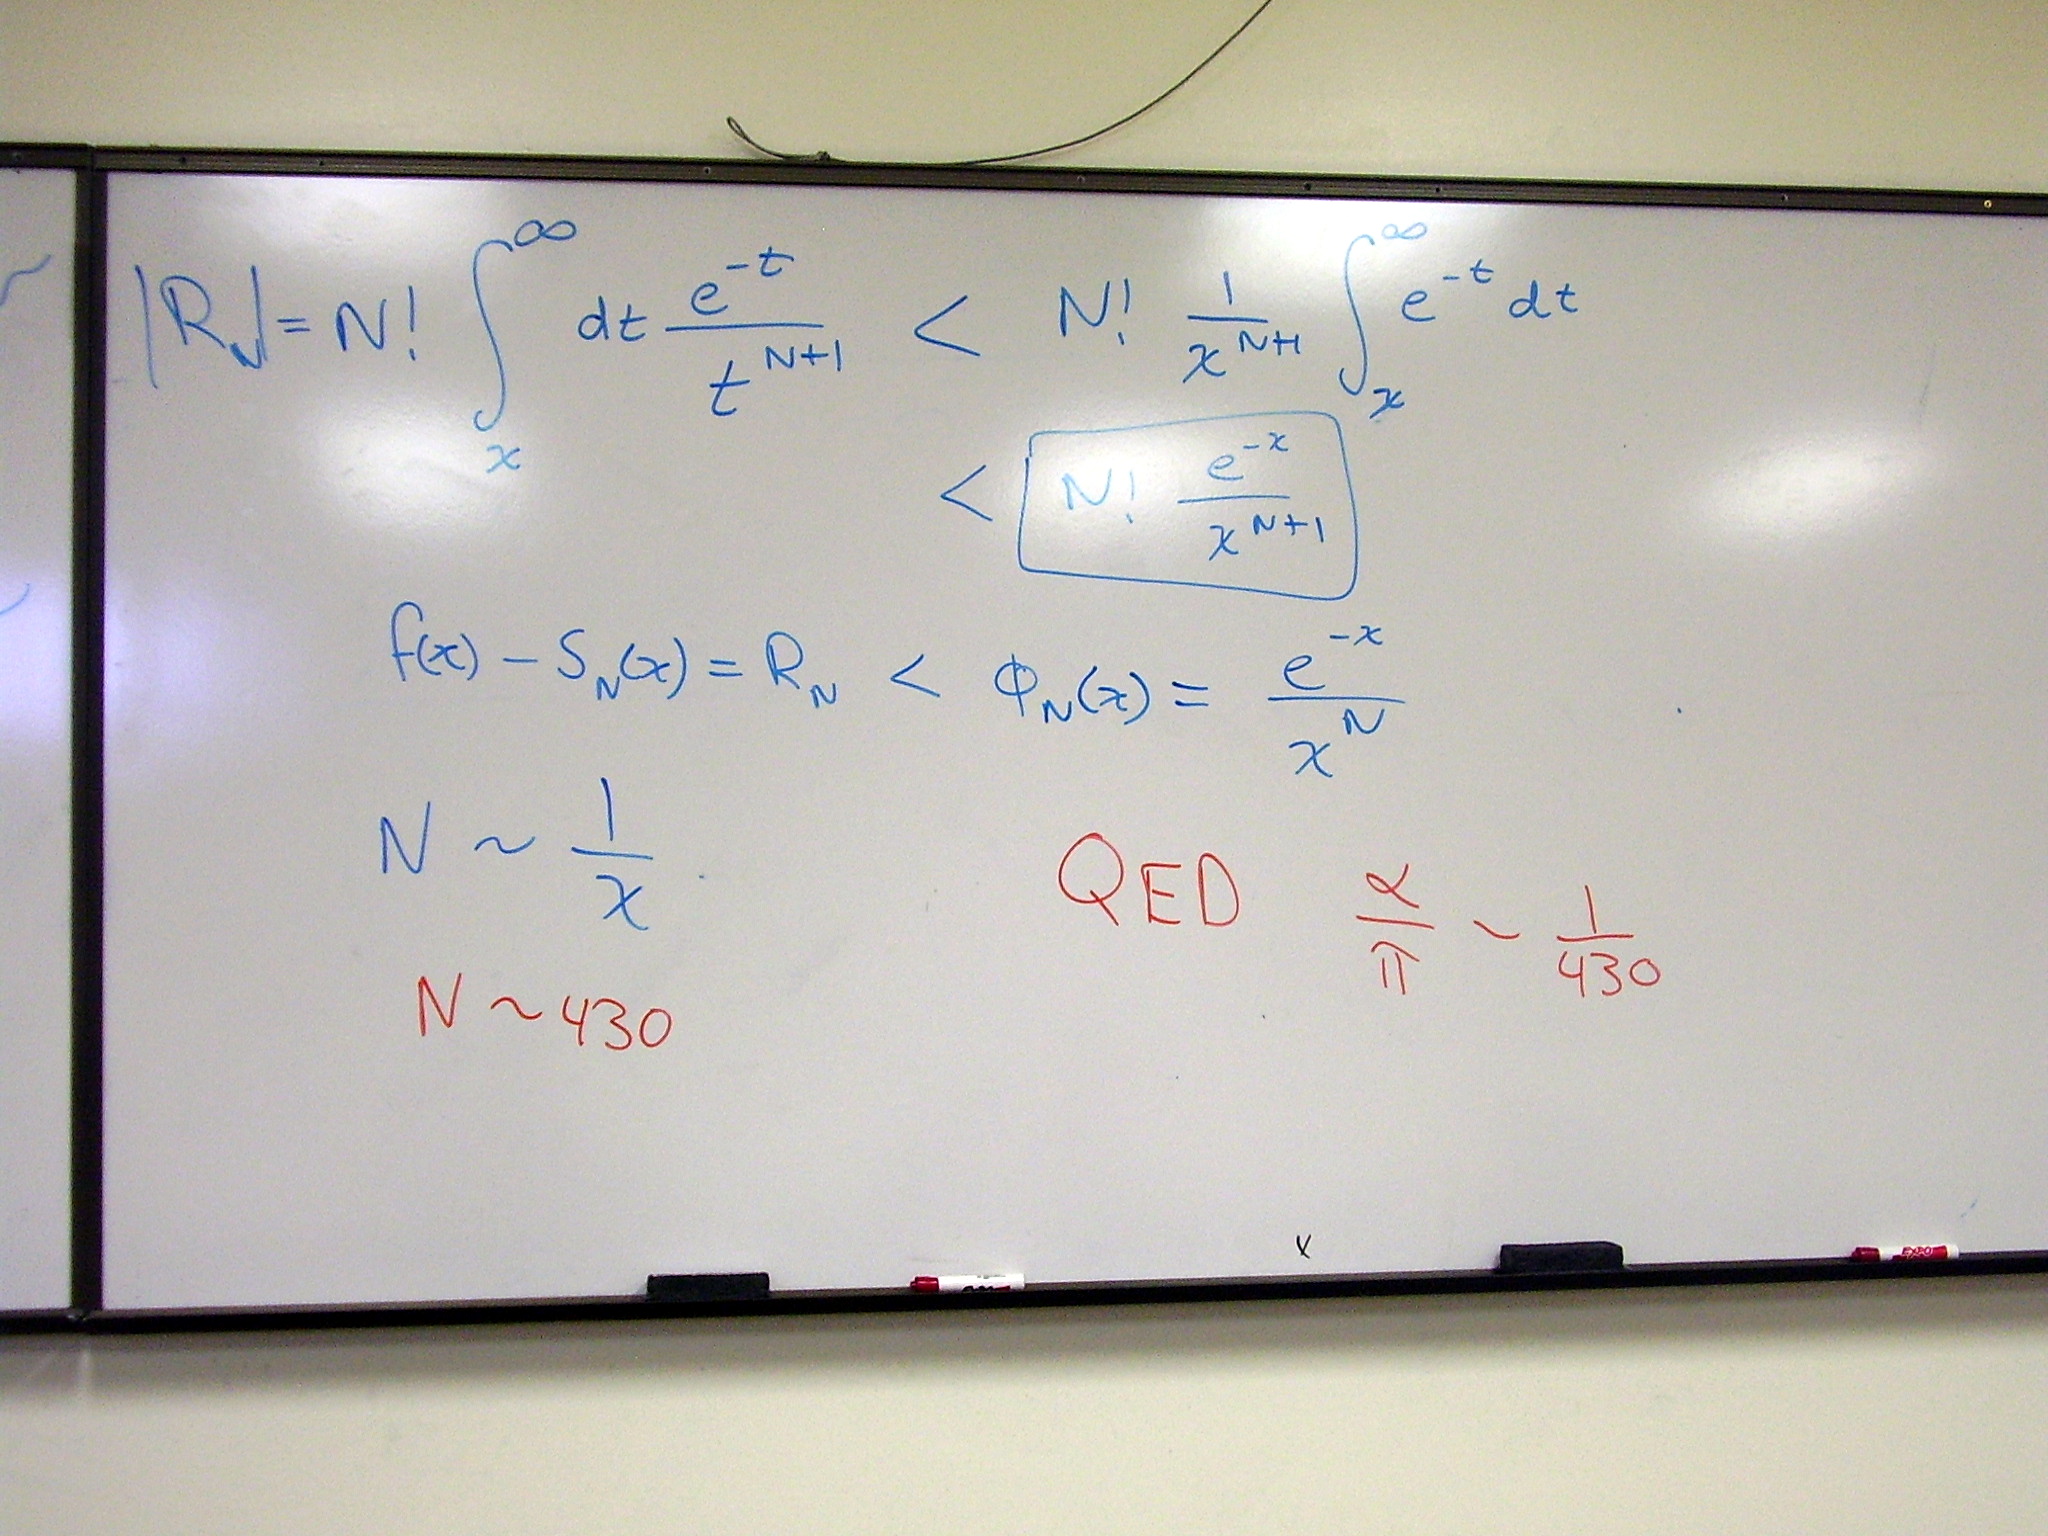 |R_N| = N! ∫_x^∞ dt e^{-t} / t^{N+1} < N! 1/x^{N+1} ∫_x^∞ e^{-t} dt
< N! e^{-x} / x^{N+1}
f(x) - S_N(x) = R_N < ϕ_N(x) = e^{-x} / x^N
N ~ 1/x
QED α/π ~ 1/430
N ~ 430
x
EXPO